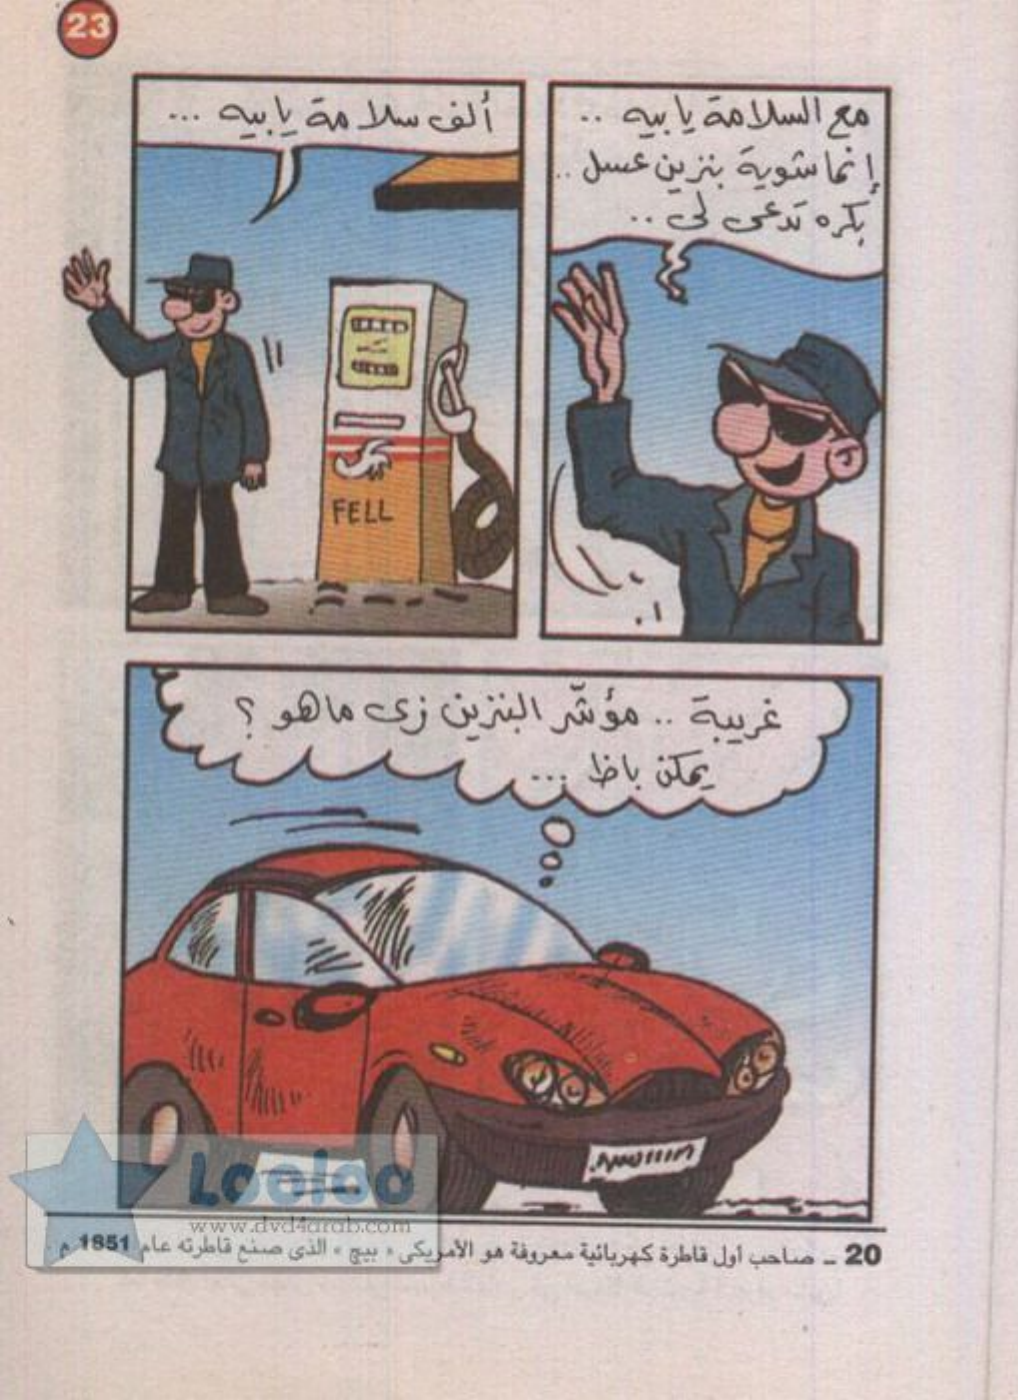 23
مع السلامة يا بيه ..
إنما شوية بنزين عسل ..
بكره تدعى لى ..
ألف سلامة يا بيه ...
FELL
غريبة .. مؤشّر البنزين زى ما هو ؟
يمكن باظ ...
Looloo
www.dvd4arab.com
20 ــ صاحب أول قاطرة كهربائية معروفة هو الأمريكى « بيچ » الذى صنع قاطرته عام 1851 م .